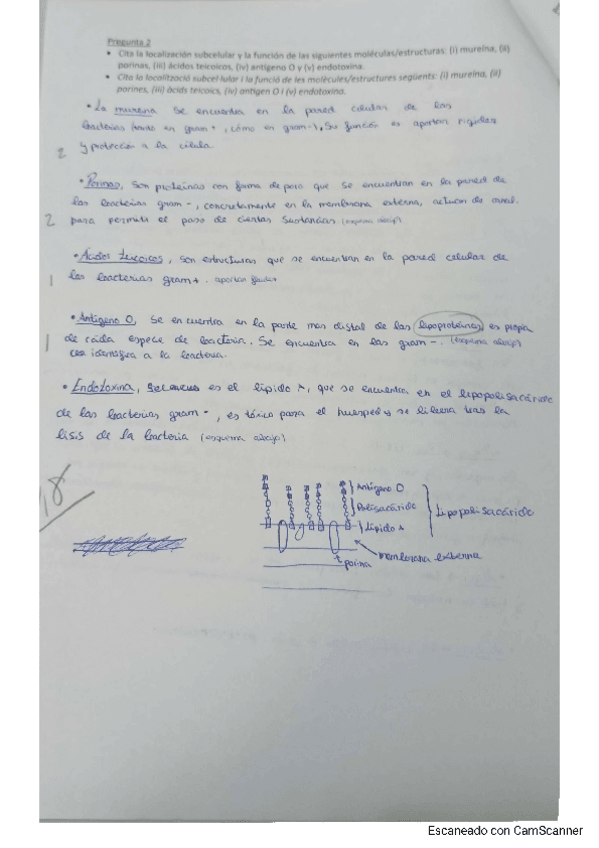 Pregunta 2
• Cita la localización subcelular y la función de las siguientes moléculas/estructuras: (i) mureína, (ii)
porinas, (iii) ácidos teicoicos, (iv) antígeno O y (v) endotoxina.
• Cita la localització subcel·lular i la funció de les molècules/estructures següents: (i) mureïna, (ii)
porines, (iii) àcids teicoics, (iv) antigen O i (v) endotoxina.
• La mureina se encuentra en la pared celular de las
bacterias tanto en gram+, cómo en gram-, Su función es aportar
y protección a la célula.
2
• Porinas, son proteínas con forma de poro que se encuentran en la pared de
las bacterias gram-, concretamente en la membrana externa, actuan de
para permitir el paso de ciertas sustancias (esquema abajo)
2
• Ácidos teicoicos, son estructuras que se encuentran en la pared celular de
las bacterias gram+. aportan
1
• Antígeno O, se encuentra en la parte mas distal de las lipoproteínas, es propia
de cada especie de bacteria. Se encuentra en las gram-. (esquema abajo)
identifica a la bacteria.
1
• Endotoxina, es el lípido A, que se encuentra en el lipopolisacáride
de las bacterias gram-, es tóxico para el huesped y se libera tras la
lisis de la bacteria (esquema abajo)
Antígeno O
Polisacáride
Lipopolisacáride
Lípido A
membrana externa
porina
Escaneado con CamScanner